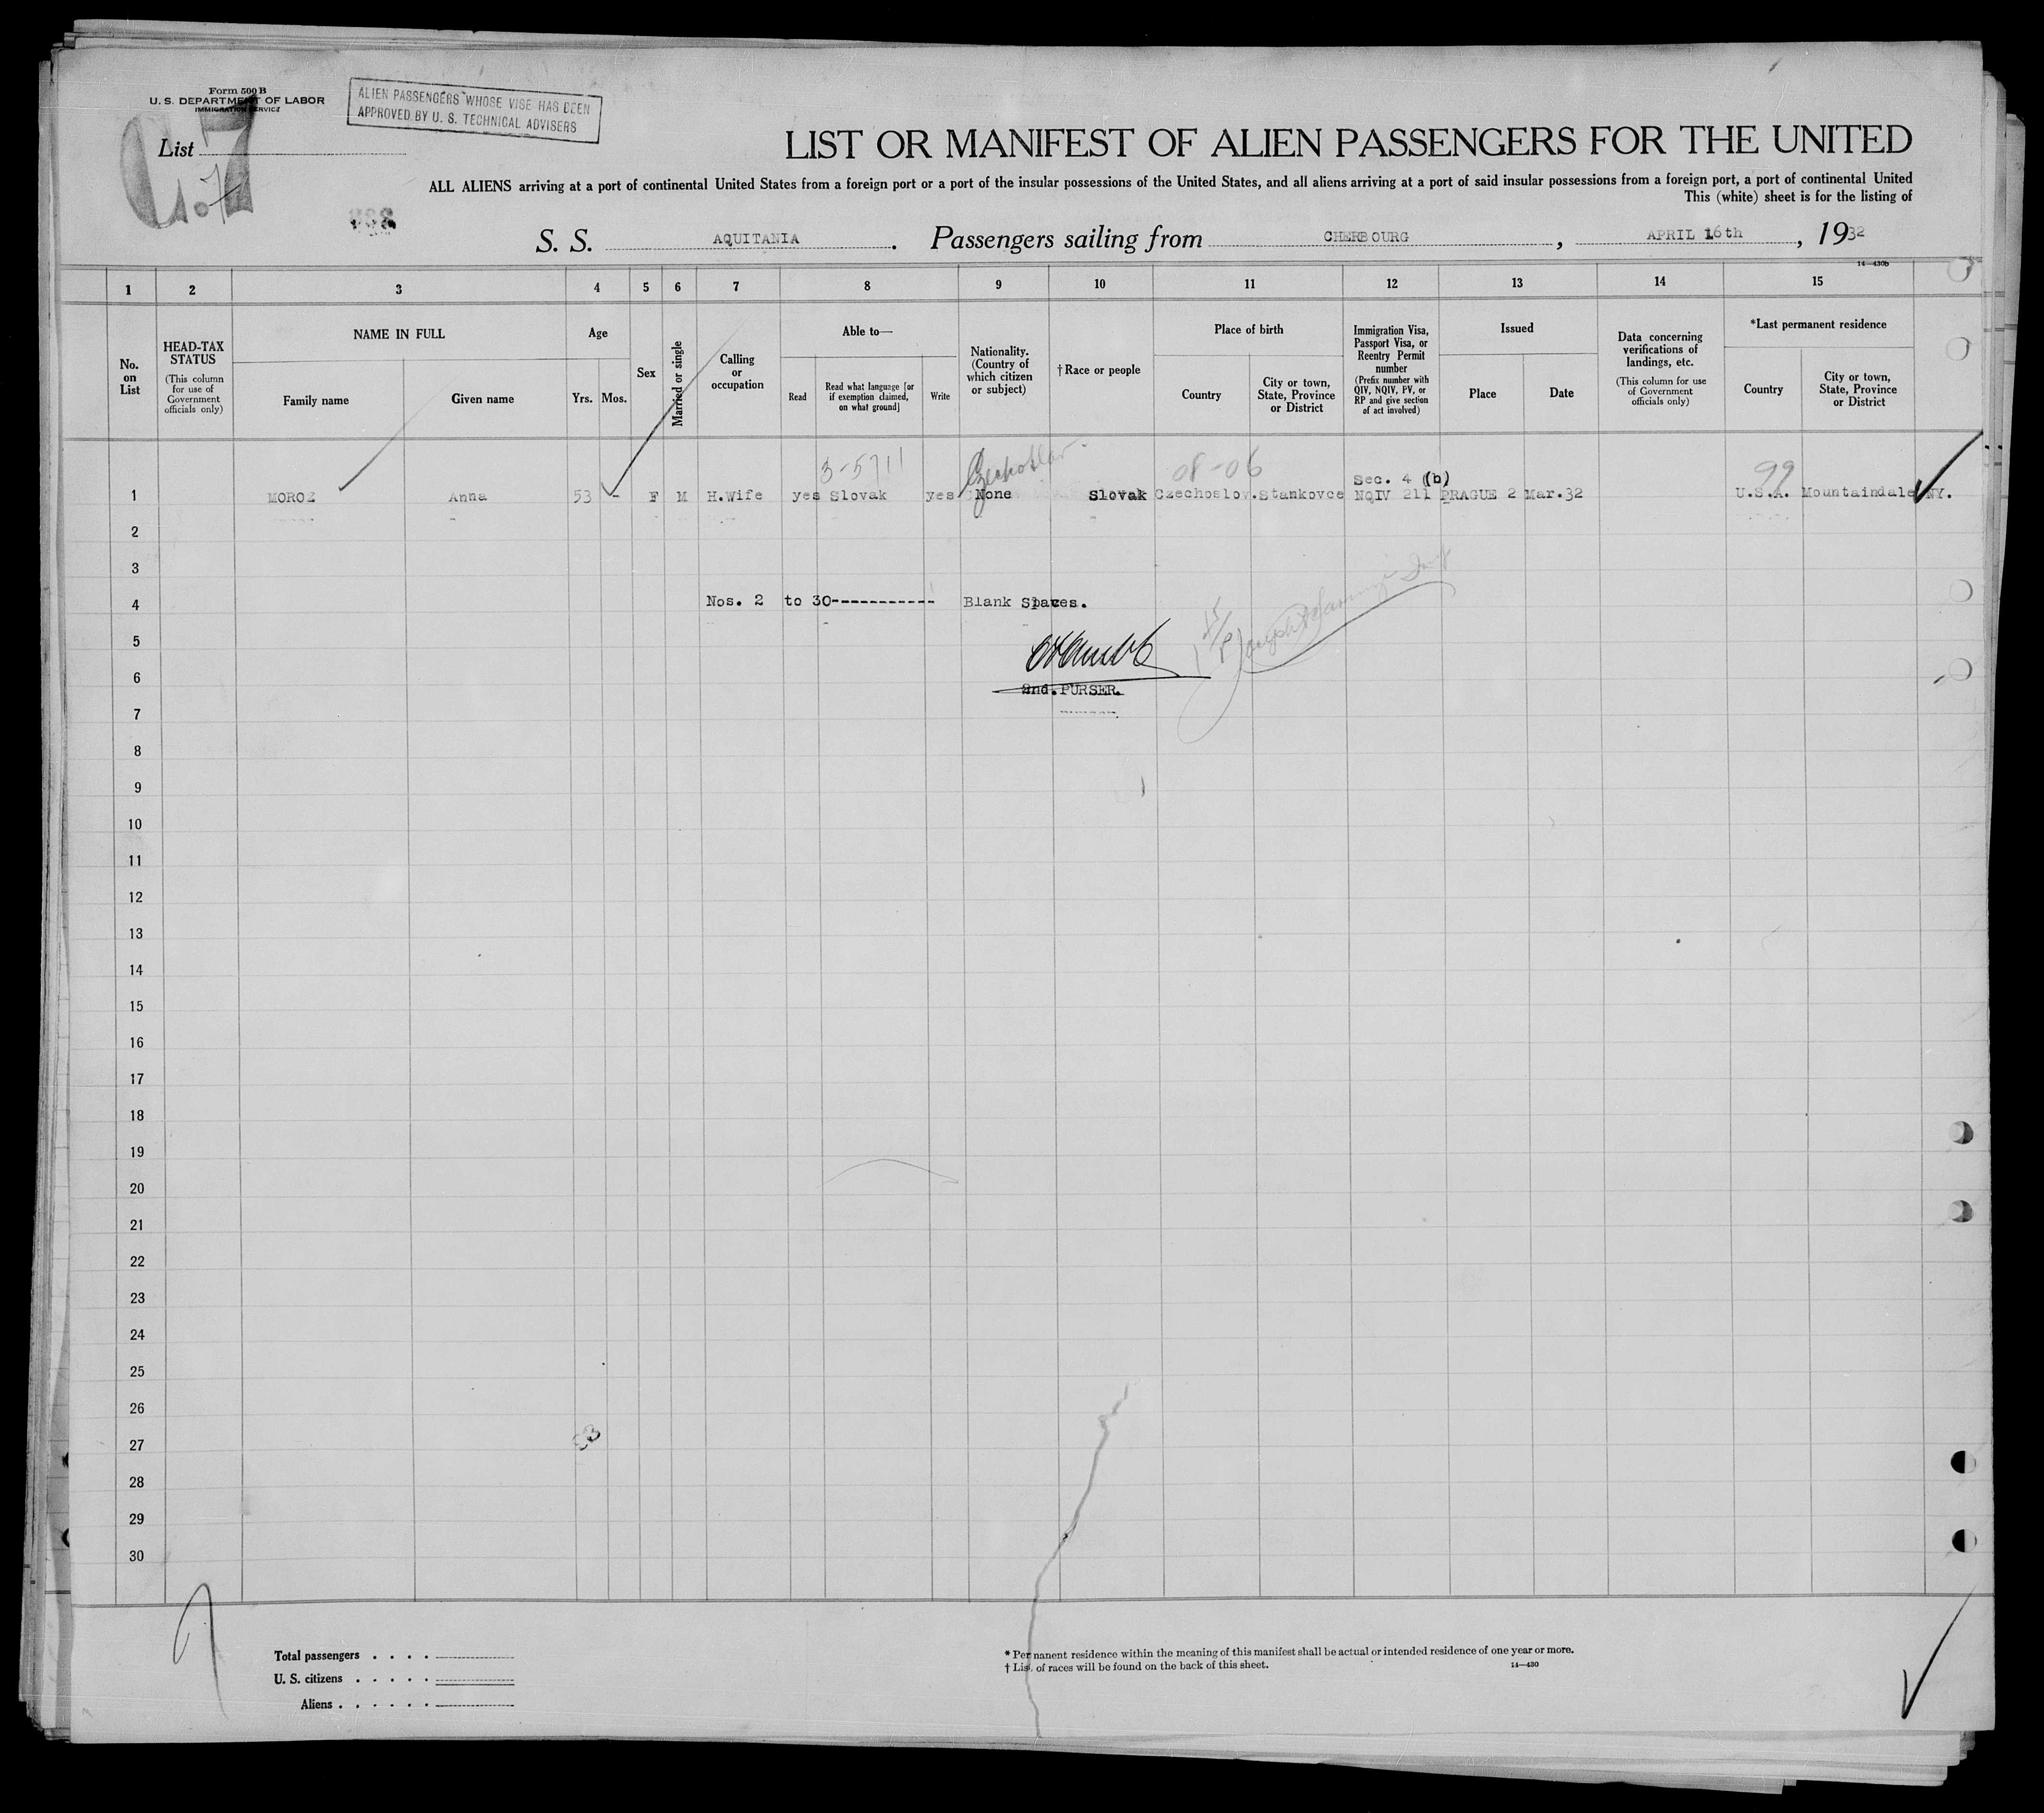 Form 500 B
U. S. DEPARTMENT OF LABOR
IMMIGRATION SERVICE
ALIEN PASSENGERS WHOSE VISE HAS BEEN
APPROVED BY U. S. TECHNICAL ADVISERS
List 7
LIST OR MANIFEST OF ALIEN PASSENGERS FOR THE UNITED
ALL ALIENS arriving at a port of continental United States from a foreign port or a port of the insular possessions of the United States, and all aliens arriving at a port of said insular possessions from a foreign port, a port of continental United
This (white) sheet is for the listing of
S. S. AQUITANIA. Passengers sailing from CHERBOURG, APRIL 16th, 1932
14—430b
1 2 3 4 5 6 7 8 9 10 11 12 13 14 15
No. on List
HEAD-TAX STATUS (This column for use of Government officials only)
NAME IN FULL
Family name Given name
Age
Yrs. Mos.
Sex
Married or single
Calling or occupation
Able to—
Read Read what language [or if exemption claimed, on what ground] Write
Nationality. (Country of which citizen or subject)
†Race or people
Place of birth
Country City or town, State, Province or District
Immigration Visa, Passport Visa, or Reentry Permit number (Prefix number with QIV, NQIV, PV, or RP and give section of act involved)
Issued
Place Date
Data concerning verifications of landings, etc. (This column for use of Government officials only)
*Last permanent residence
Country City or town, State, Province or District
3-5711 Czechoslov 08-06 Sec. 4 (b) 99
1 MOROZ Anna 53 - F M H.Wife yes Slovak yes None Slovak Czechoslov. Stankovce NQIV 211 PRAGUE 2 Mar.32 U.S.A. Mountaindale NY.
2
3
4 Nos. 2 to 30----------- Blank Spaces.
5
6 2nd. PURSER.
7
8
9
10
11
12
13
14
15
16
17
18
19
20
21
22
23
24
25
26
27
28
29
30
Total passengers . . . .
U. S. citizens . . . . .
Aliens . . . . . .
* Permanent residence within the meaning of this manifest shall be actual or intended residence of one year or more.
† List of races will be found on the back of this sheet.
14—430